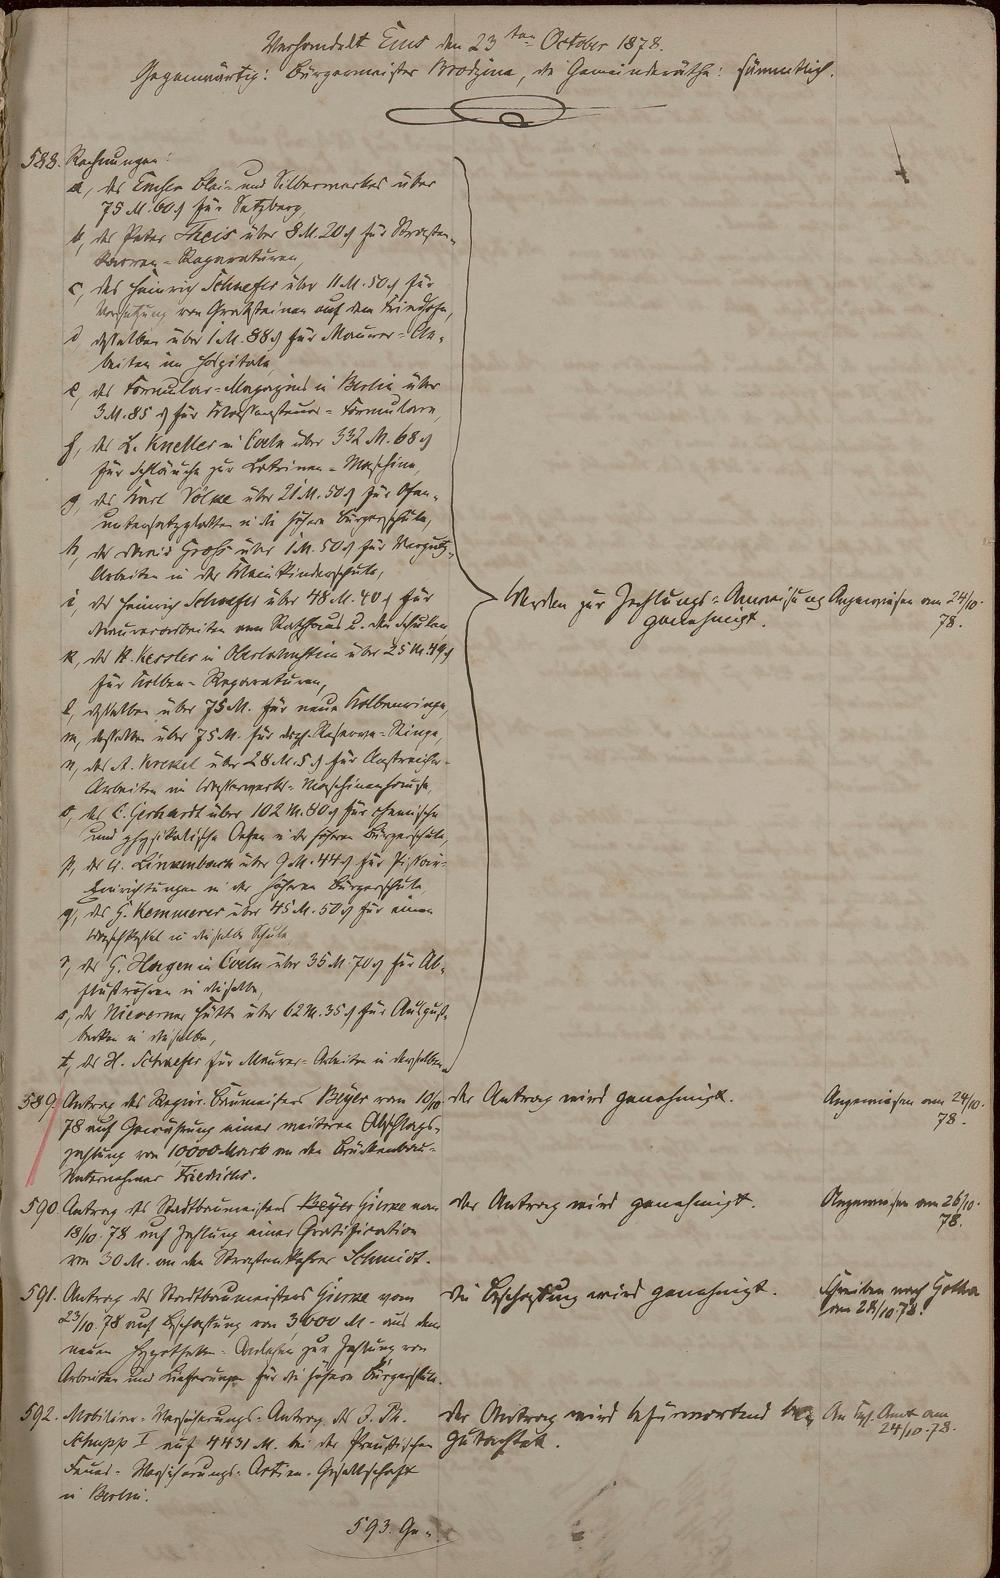 Verhandelt Ems den 23ten October 1878.
Gegenwärtig: Bürgermeister Brodzina, die Gemeinderäthe: sämmtlich.
588. Rechnungen:
a, des Emser Blei- und Silberwerkes über
75 M. 60 ₰ für Setzberg,
b, des Peter Theis über 8 M. 20 ₰ für Strassen-
karren-Reparaturen,
c, des Heinrich Schaefer über 11 M. 50 ₰ für
Versetzung von Grabsteinen auf dem Friedhofe,
d, desselben über 1 M. 88 ₰ für Maurer-Ar-
beiten im Hospitale,
e, des Formular-Magazins in Berlin über
3 M. 85 ₰ für Klassensteuer-Formulare,
f, des L. Kneller in Coeln über 332 M. 68 ₰
für Schläuche zur Latrinen-Maschine,
g, des Karl Völke über 21 M. 50 ₰ für Ofen-
untersatzplatten in die höhere Bürgerschule,
h, der David Groß über 1 M. 50 ₰ für Verputz-
Arbeiten in der Kleinkinderschule,
i, des Heinrich Schaefer über 48 M. 40 ₰ für
Maurerarbeiten am Rathhaus u. den Schulen
k, des H. Kessler in Oberlahnstein über 25 M. 49 ₰
für Kolben-Reparaturen,
l, desselben über 75 M. für neue Kolbenringe,
m, desselben über 75 M. für desgl. Reserve-Ringe,
n, des A. Krekel über 28 M. 5 ₰ für Anstreicher-
Arbeiten im Wasserwerks-Maschinenhause,
o, des C. Gerhardt über 102 M. 80 ₰ für chemische
und physikalische Oefen in der höheren Bürgerschule,
p, des A. Linkenbach über 9 M. 44 ₰ für Pissoir-
Einrichtungen in der höheren Bürgerschule,
q, des G. Kemmerer über 45 M. 50 ₰ für einen
Waschkessel in dieselbe Schule
r, des G. Hagen in Coeln über 35 M. 70 ₰ für Ab-
flußröhren in dieselbe,
s, der Nieverner Hütte über 62 M. 35 ₰ für Ausguß-
becken in dieselbe,
t, des H. Schaefer für Maurer-Arbeiten in derselben
Werden zur Zahlungs-Anweisung
genehmigt.
Angewiesen am 24/10.
78.
589. Antrag des Regier. Baumeisters Beyer vom 10/10
78 auf Gewährung einer weiteren Abschlags-
zahlung von 10000 Mark an den Brückenbau-
Unternehmer Friedrichs.
Der Antrag wird genehmigt.
Angewiesen am 24/10.
78.
590 Antrag des Stadtbaumeisters Beyer Gierke vom
18/10. 78 auf Zahlung einer Gratification
von 30 M. an den Strassenkehrer Schmidt.
Der Antrag wird genehmigt.
Angewiesen am 26/10.
78.
591. Antrag des Stadtbaumeisters Gierke vom
23/10. 78 auf Beschaffung von 3,000 M. aus dem
neuen Hypotheken-Anlehen zur Zahlung von
Arbeiten und Lieferungen für die höhere Bürgerschule.
Die Beschaffung wird genehmigt.
Schreiben nach Gotha
am 28/10.78.
592. Mobiliar-Versicherungs-Antrag des J. Ph.
Schupp I auf 4431 M. bei der Preußischen
Feuer-Versicherungs-Actien-Gesellschaft
in Berlin.
Der Antrag wird befürwortend be-
gutachtet.
An Kgl. Amt am
24/10.78.
593. Ge-